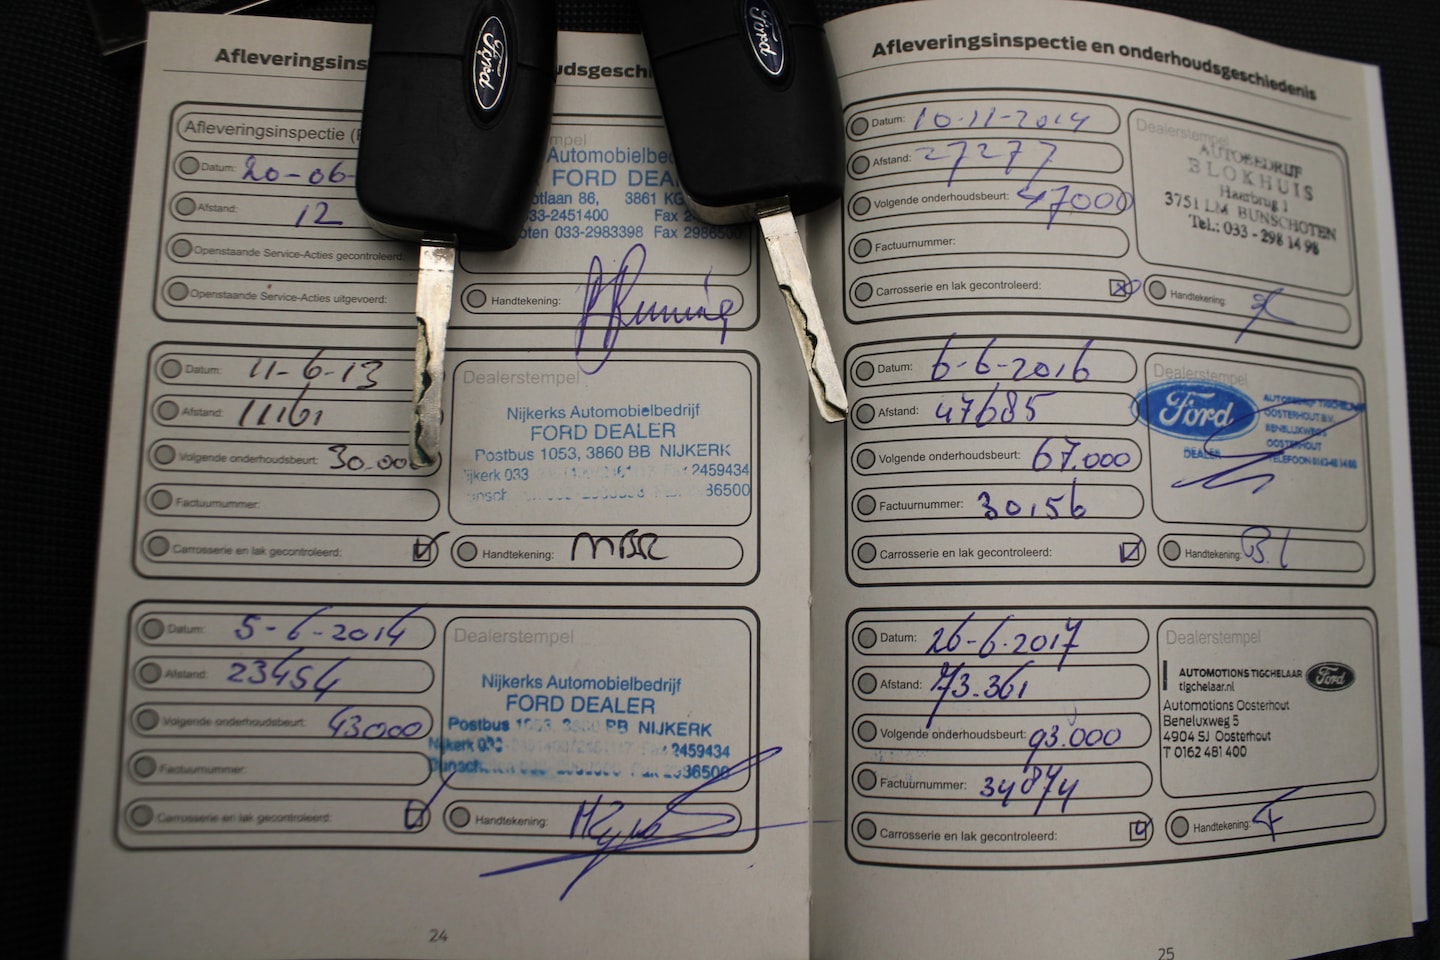 Afleveringsins
udsgeschi
Afleveringsinspectie (
Datum: 20-06-
Afstand: 12
Openstaande Service-Acties gecontroleerd:
Openstaande Service-Acties uitgevoerd:
Automobielbed
FORD DEA
otlaan 86, 3861 KG
033-2451400 Fax 2
oten 033-2983398 Fax 2986500
Handtekening:
Datum: 11-6-13
Afstand: 11161
Volgende onderhoudsbeurt: 30.000
Factuurnummer:
Carrosserie en lak gecontroleerd:
Dealerstempel
Nijkerks Automobielbedrijf
FORD DEALER
Postbus 1053, 3860 BB NIJKERK
ijkerk 033 2459434
86500
Handtekening: MBR
Datum: 5-6-2014
Afstand: 23454
Volgende onderhoudsbeurt: 43000
Factuurnummer:
Carrosserie en lak gecontroleerd:
Dealerstempel
Nijkerks Automobielbedrijf
FORD DEALER
Postbus 1053, 3860 BB NIJKERK
Nijkerk 2459434
Bunsch 2986500
Handtekening:
24
Afleveringsinspectie en onderhoudsgeschiedenis
Datum: 10-11-2014
Afstand: 27277
Volgende onderhoudsbeurt: 47000
Factuurnummer:
Carrosserie en lak gecontroleerd:
Dealerstempel
AUTOBEDRIJF
BLOKHUIS
Haarbrug 1
3751 LM BUNSCHOTEN
Tel.: 033 - 298 14 98
Handtekening:
Datum: 6-6-2016
Afstand: 47685
Volgende onderhoudsbeurt: 67.000
Factuurnummer: 30156
Carrosserie en lak gecontroleerd:
Dealerstempel
Ford
DEALER
OOSTERHOUT B.V.
BENELUXWEG
OOSTERHOUT
Handtekening:
Datum: 26-6-2017
Afstand: 73.361
Volgende onderhoudsbeurt: 93.000
Factuurnummer: 34874
Carrosserie en lak gecontroleerd:
Dealerstempel
AUTOMOTIONS TIGCHELAAR Ford
tigchelaar.nl
Automotions Oosterhout
Beneluxweg 5
4904 SJ Oosterhout
T 0162 481 400
Handtekening:
25
Ford
Ford